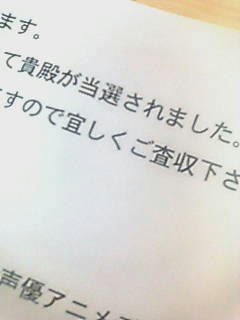 ます。
て貴殿が当選されました。
すので宜しくご査収下さ
声優アニメ